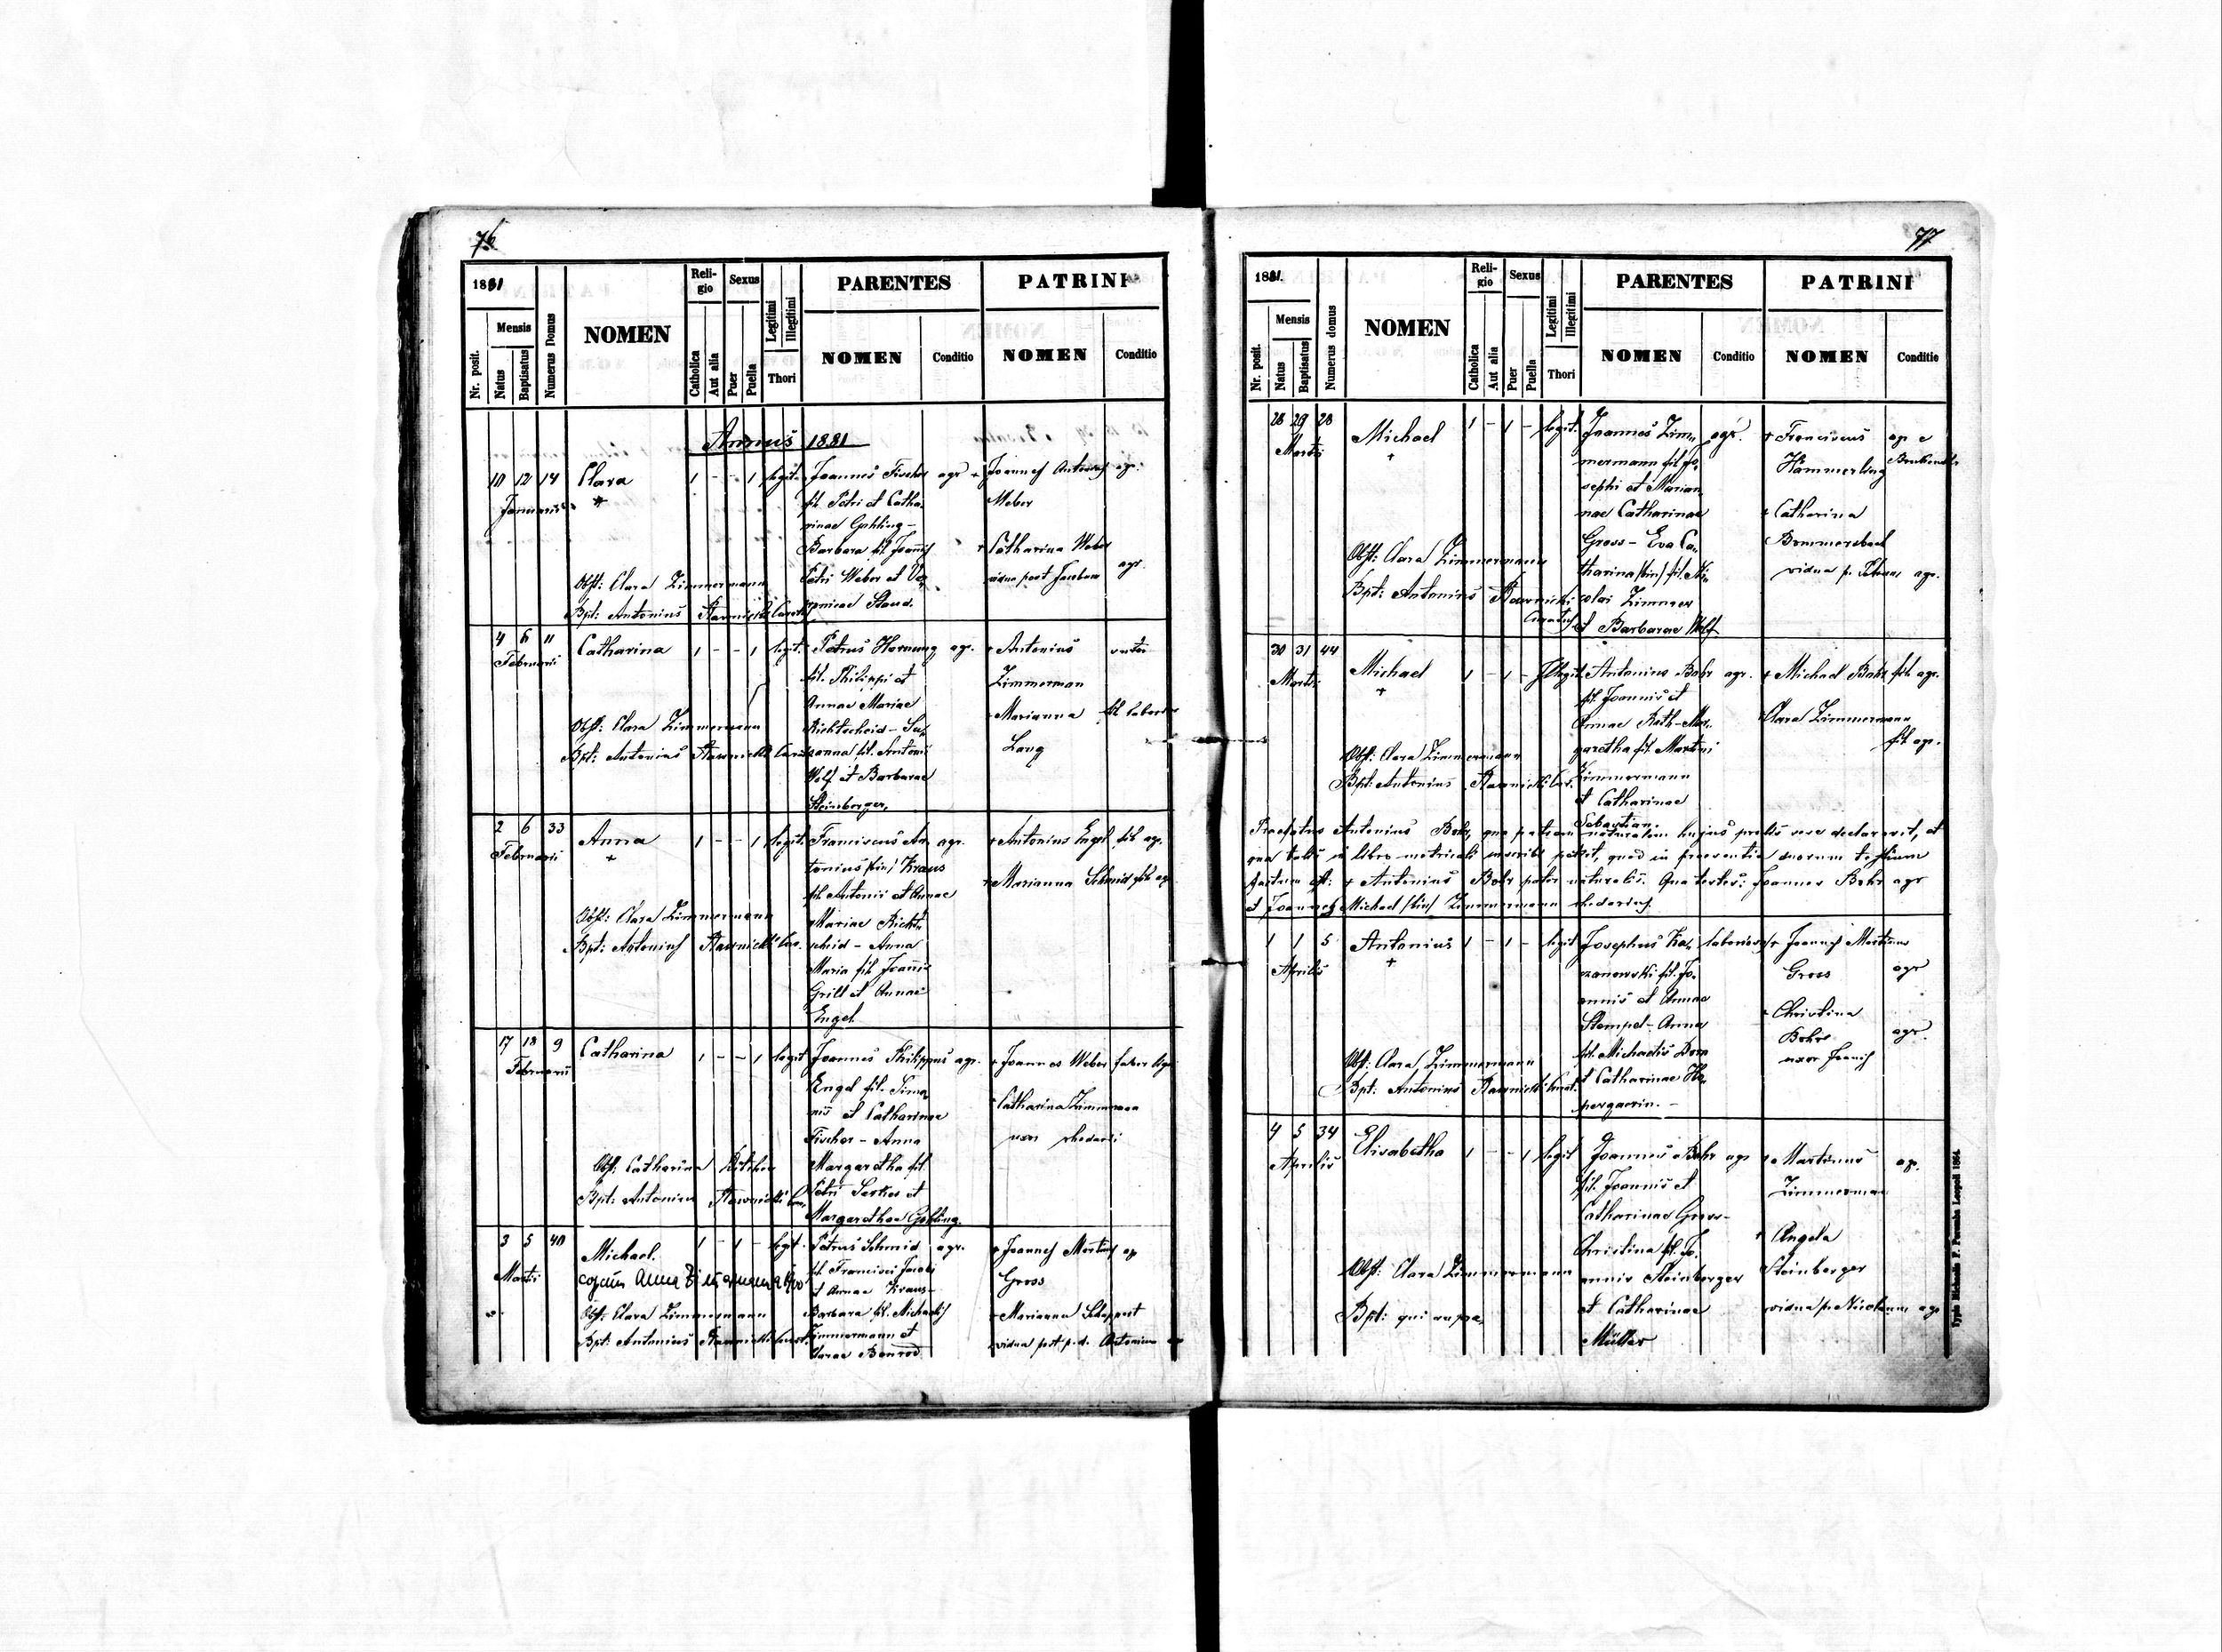 76
1881
Nr. posit.
Mensis
Natus
Baptisatus
Numerus Domus
NOMEN
Religio
Catholica
Aut alia
Sexus
Puer
Puella
Legitimi
Illegitimi
Thori
PARENTES
NOMEN
Conditio
PATRINI
NOMEN
Conditio
Annus 1881
10 12 14
Januarii
Clara
+
1 - - 1 legit.
Joannes Fischer agr
fil. Petri et Catha
rinae Gohling -
Barbara fil. Joannis
Petri Weber et Ve
ronicae Staud.
+ Joannes Antonius agr.
Weber
+ Catharina Weber
vidua post Jacobum agr
Obst: Clara Zimmermann
Bpt: Antonius
4 6 11
Februarii
Catharina
1 - - 1 legit.
Petrus Hornung agr.
fil. Philippi et
Annae Mariae
Richtscheid - Su,
sanna fil. Antonii
Wolf et Barbarae
Steinberger,
+ Antonius
Zimmerman
+ Marianna
Lang
Obst: Clara Zimmermann
Bpt: Antonius
2 6 33
Februarii
Anna
+
1 - - 1 legit.
Franciscus An, agr.
tonius /bin/ Kraus
fil. Antonii et Annae
Mariae Richt,
scheid - Anna
Maria fil. Joannis
Grill et Annae
Engel
+ Antonius Engel fil. agr.
+ Marianna Schmid fil. agr
Obst: Clara Zimmermann
Bpt: Antonius
17 18 9
Februarii
Catharina
1 - - 1 legit
Joannes Philippus agr.
Engel fil. Simo,
nis et Catharinae
Fischer - Anna
Margaretha fil.
Petri Serkes et
Margarethae Gohling.
+ Joannes Weber faber
+ Catharina Zimmermann
uxor rhedarii
Obst: Catharina
Bpt: Antonius
3 5 40
Martii
Michael.
1 - 1 - legit.
Petrus Schmid agr.
fil. Francisci Jacobi
et Annae Kraus -
Barbara fil. Michaelis
Zimmermann et
Clarae Bonrod
+ Joannes Martinus agr
Gross
+ Marianna Schappert
vidua post p. d. Antonium
Obst: Clara Zimmermann
Bpt: Antonius
77
1881.
Nr. posit.
Mensis
Natus
Baptisatus
Numerus domus
NOMEN
Religio
Catholica
Aut alia
Sexus
Puer
Puella
Legitimi
Illegitimi
Thori
PARENTES
NOMEN
Conditio
PATRINI
NOMEN
Conditio
28 29 28
Martii
Michael
+
1 - 1 - legit.
Joannes Zim, agr.
mermann fil. Jo,
sephi et Marian,
nae Catharinae
Gross - Eva Ca,
tharina /bin/ fil. Ni,
colai Zimmer
et Barbarae Wolf
+ Franciscus
Hammerling
+ Catharina
Brommersbach
vidua p. agr.
Obst: Clara Zimmermann
Bpt: Antonius
30 31 44
Martii
Michael
+
1 - 1 - Illegit
Antonius Bohr agr.
fil. Joannis et
Annae Rath - Mar,
garetha fil. Martini
Zimmermann
et Catharinae
Sebastian.
+ Michael Bohr fil. agr.
+ Clara Zimmermann
fil. agr.
Obst: Clara Zimmermann
Bpt: Antonius
Praefatus Antonius Bohr, qua patrem naturalem hujus prolis vere declaravit, et
qua talis in libro metricali inscribi petiit, quod in praesentia duorum testium
factum est: + Antonius Bohr pater naturalis. Qua testes: Joannes Bohr agr
et Joannes Michael /bin/ Zimmermann rhedarius
1 1 5
Aprilis
Antonius
+
1 - 1 - legit
Josephus Ka, laborios
zanowski fil. Jo,
annis et Annae
Stempel - Anna
fil. Michaelis Dorn
et Catharinae
+ Joannes Martinus
Gross agr
+ Christina
Bohr agr.
uxor Joannis
Obst: Clara Zimmermann
Bpt: Antonius
4 5 34
Aprilis
Elisabetha
1 - - 1 legit
Joannes Bohr agr
fil. Joannis et
Catharinae Gross -
Christina fil. Jo,
annis Steinberger
et Catharinae
Müller
+ Martinus agr.
Zimmerman
+ Angela
Steinberger
vidua p. Nicolaum agr
Obst: Clara Zimmermann
Bpt: qui supra,
Typis Michaelis F. Poremba Leopoli 1864.